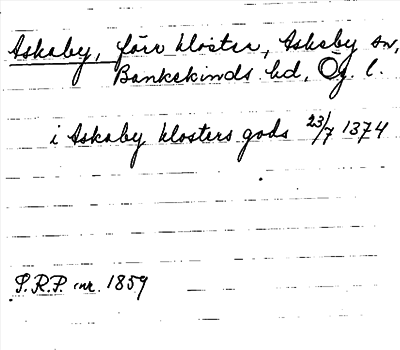 Askaby, förr kloster, Askeby sn,
Bankekinds hd, Ög. l.
i Askaby klosters gods 23/7 1374
S.R.P. nr. 1859